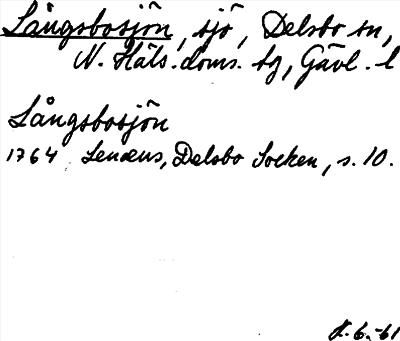 Långsbosjön, sjö, Delsbo sn,
N. Häls. doms. tg, Gävl. l
Långsbosjön
1764 Lenæus, Delsbo Socken, s. 10.
6. -61